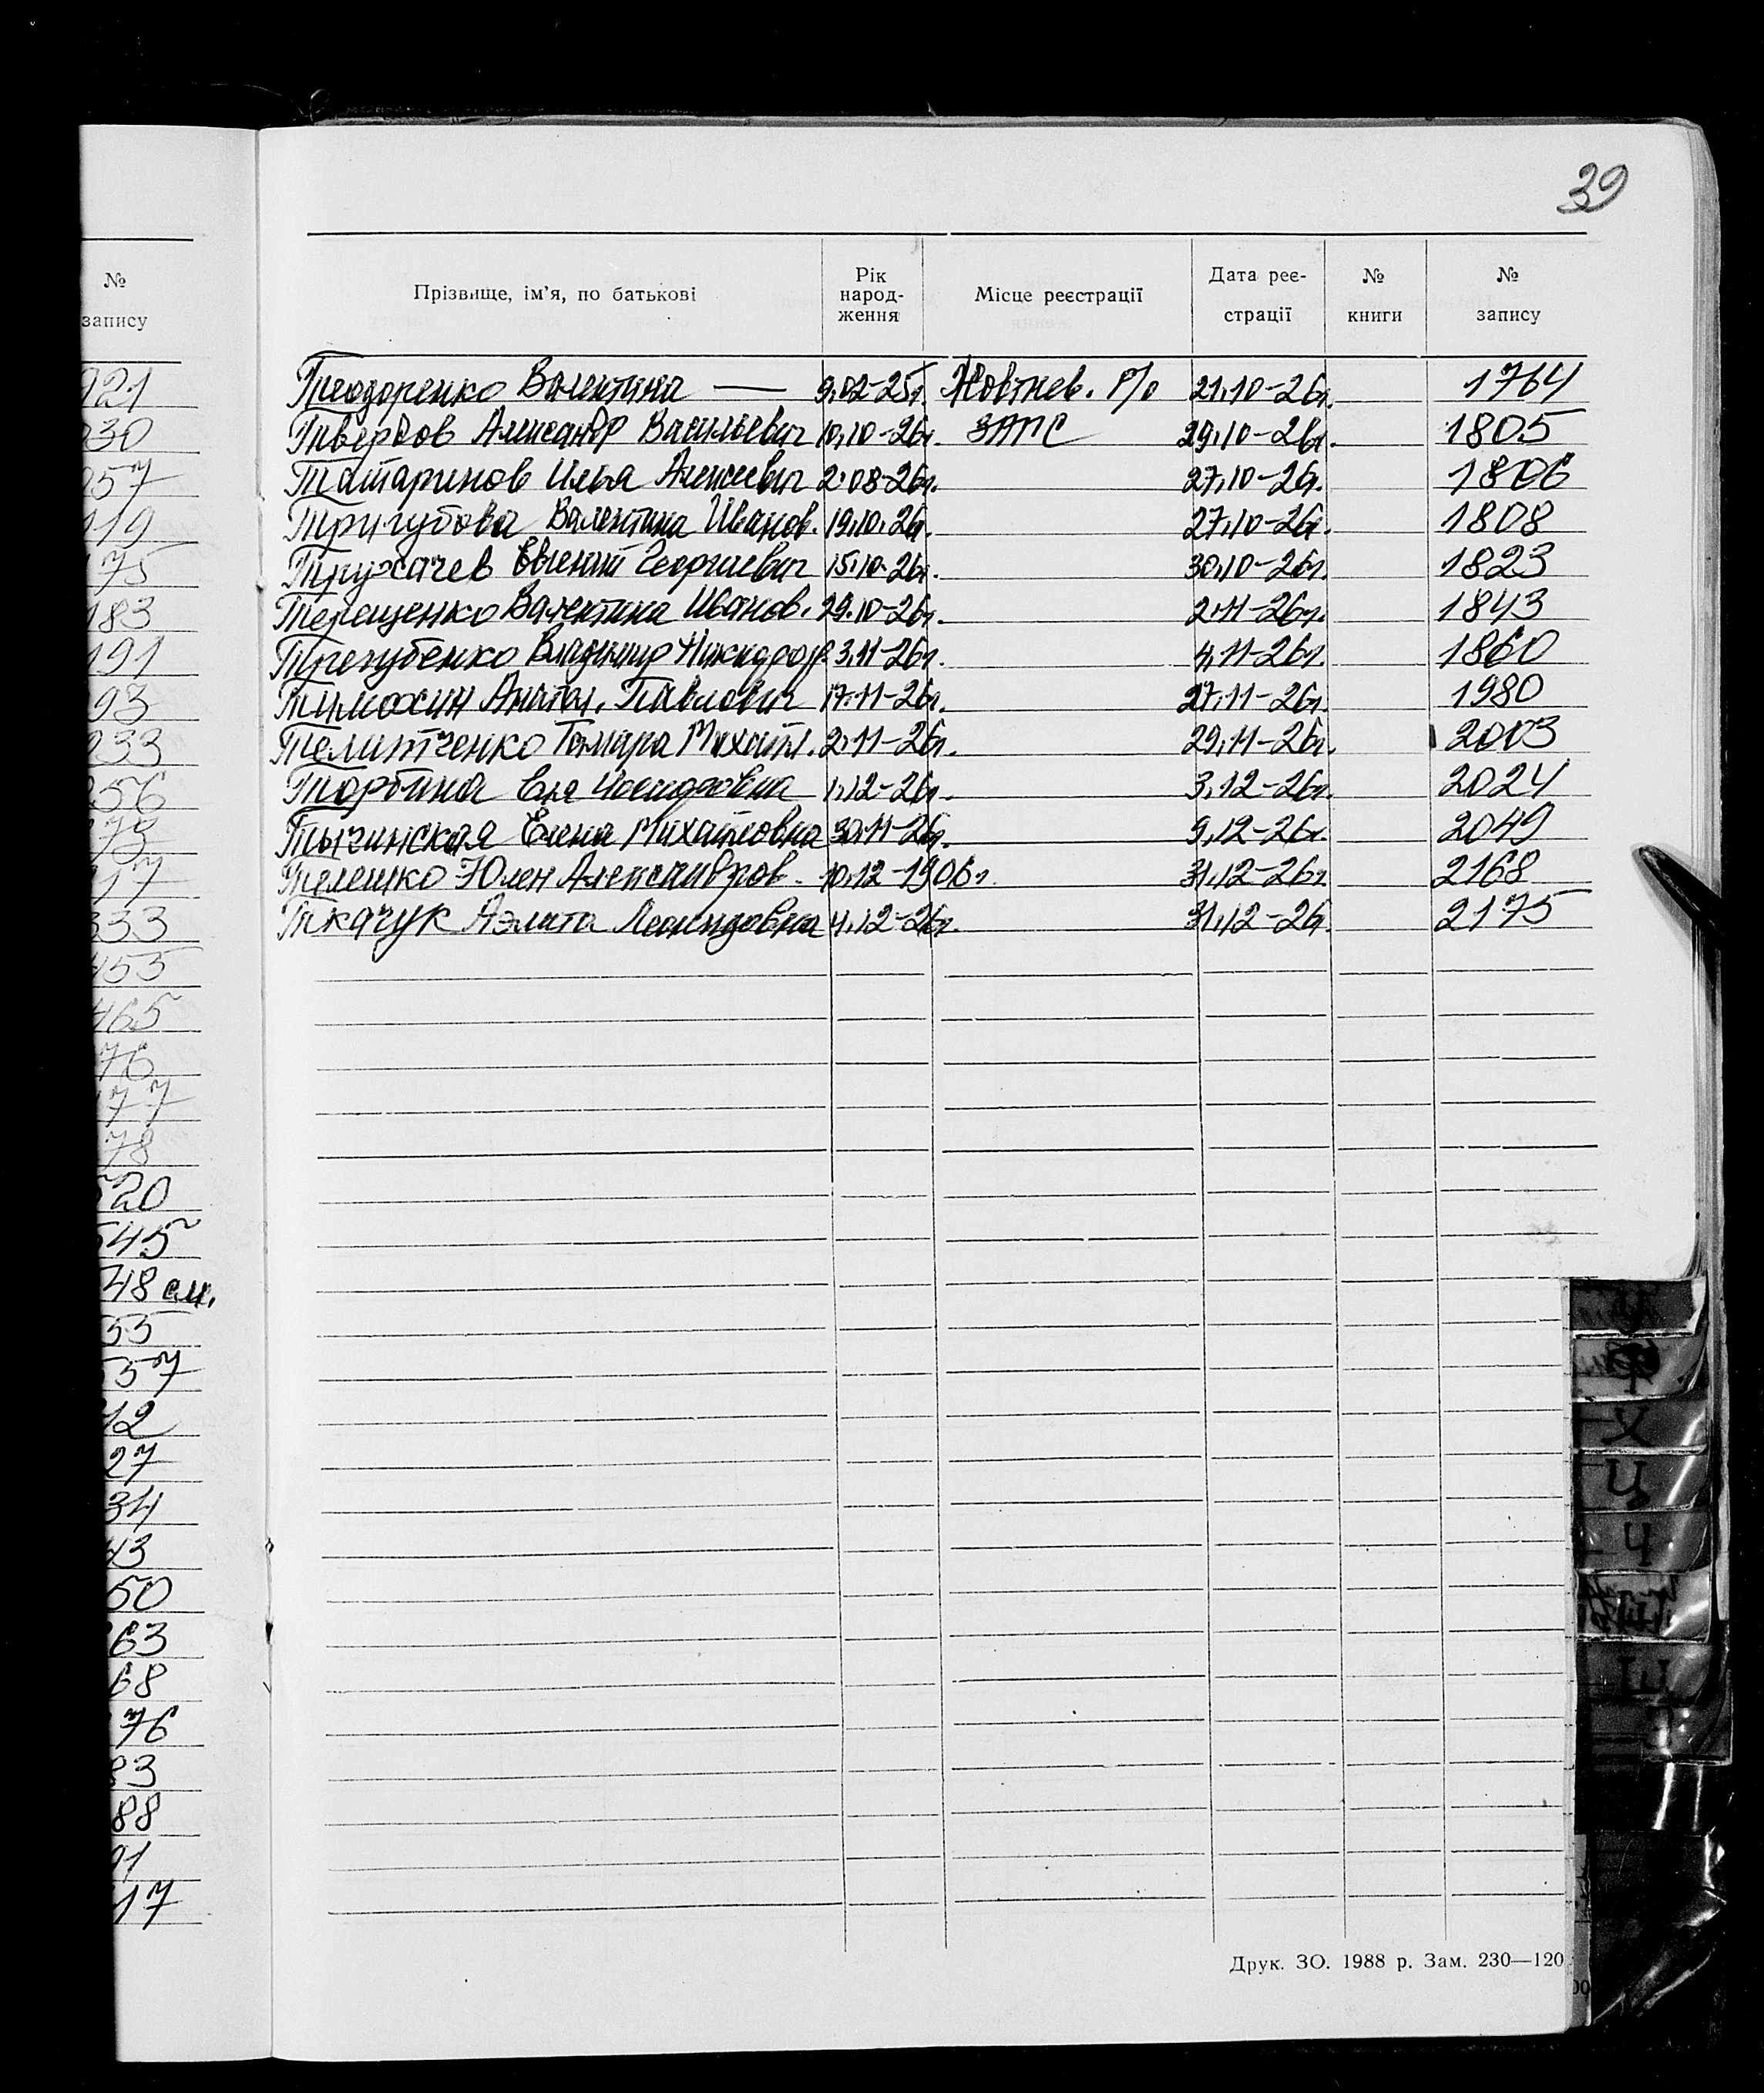 39
№
запису
Прізвище, ім'я, по батькові
Рік народ-ження
Місце реєстрації
Дата реє-страції
№ книги
№ запису
Теодоренко Валентина — 9.02-25г. Жовтнев. р/о 21.10-26г. 1764
Твердов Александр Васильевич 10.10-26г. ЗАГС 29.10-26г. 1805
Татаринов Илья Алексеевич 2.08-26г. 27.10-26г. 1806
Тригубова Валентина Иванов. 19.10.26г. 27.10-26г. 1808
Тружачев Евгений Георгиевич 15.10-26г. 30.10-26г. 1823
Терещенко Валентина Иванов. 29.10-26г. 2.11-26г. 1843
Трегубенко Владимир 3.11-26г. 4.11-26г. 1860
Тимохин Анатол. Павлович 17.11-26г. 27.11-26г. 1980
Телитченко Тамара Михайл. 2.11-26г. 29.11-26г. 2003
Торбина Ева 1.12-26г. 3.12-26г. 2024
Тычинская Елена Михайловна 30.11-26г. 9.12-26г. 2049
Телешко Юлен Александров. 10.12-1906г. 31.12-26г. 2168
Ткачук Аэлита Леонидовна 4.12-26г. 31.12-26г. 2175
921
930
957
119
75
183
191
93
233
256
273
317
333
453
465
76
477
78
520
545
48 см.
53
537
12
27
34
43
50
63
68
76
83
88
91
17
У
Ф
Х
Ц
Ч
Ш
Щ
Друк. ЗО. 1988 р. Зам. 230—120